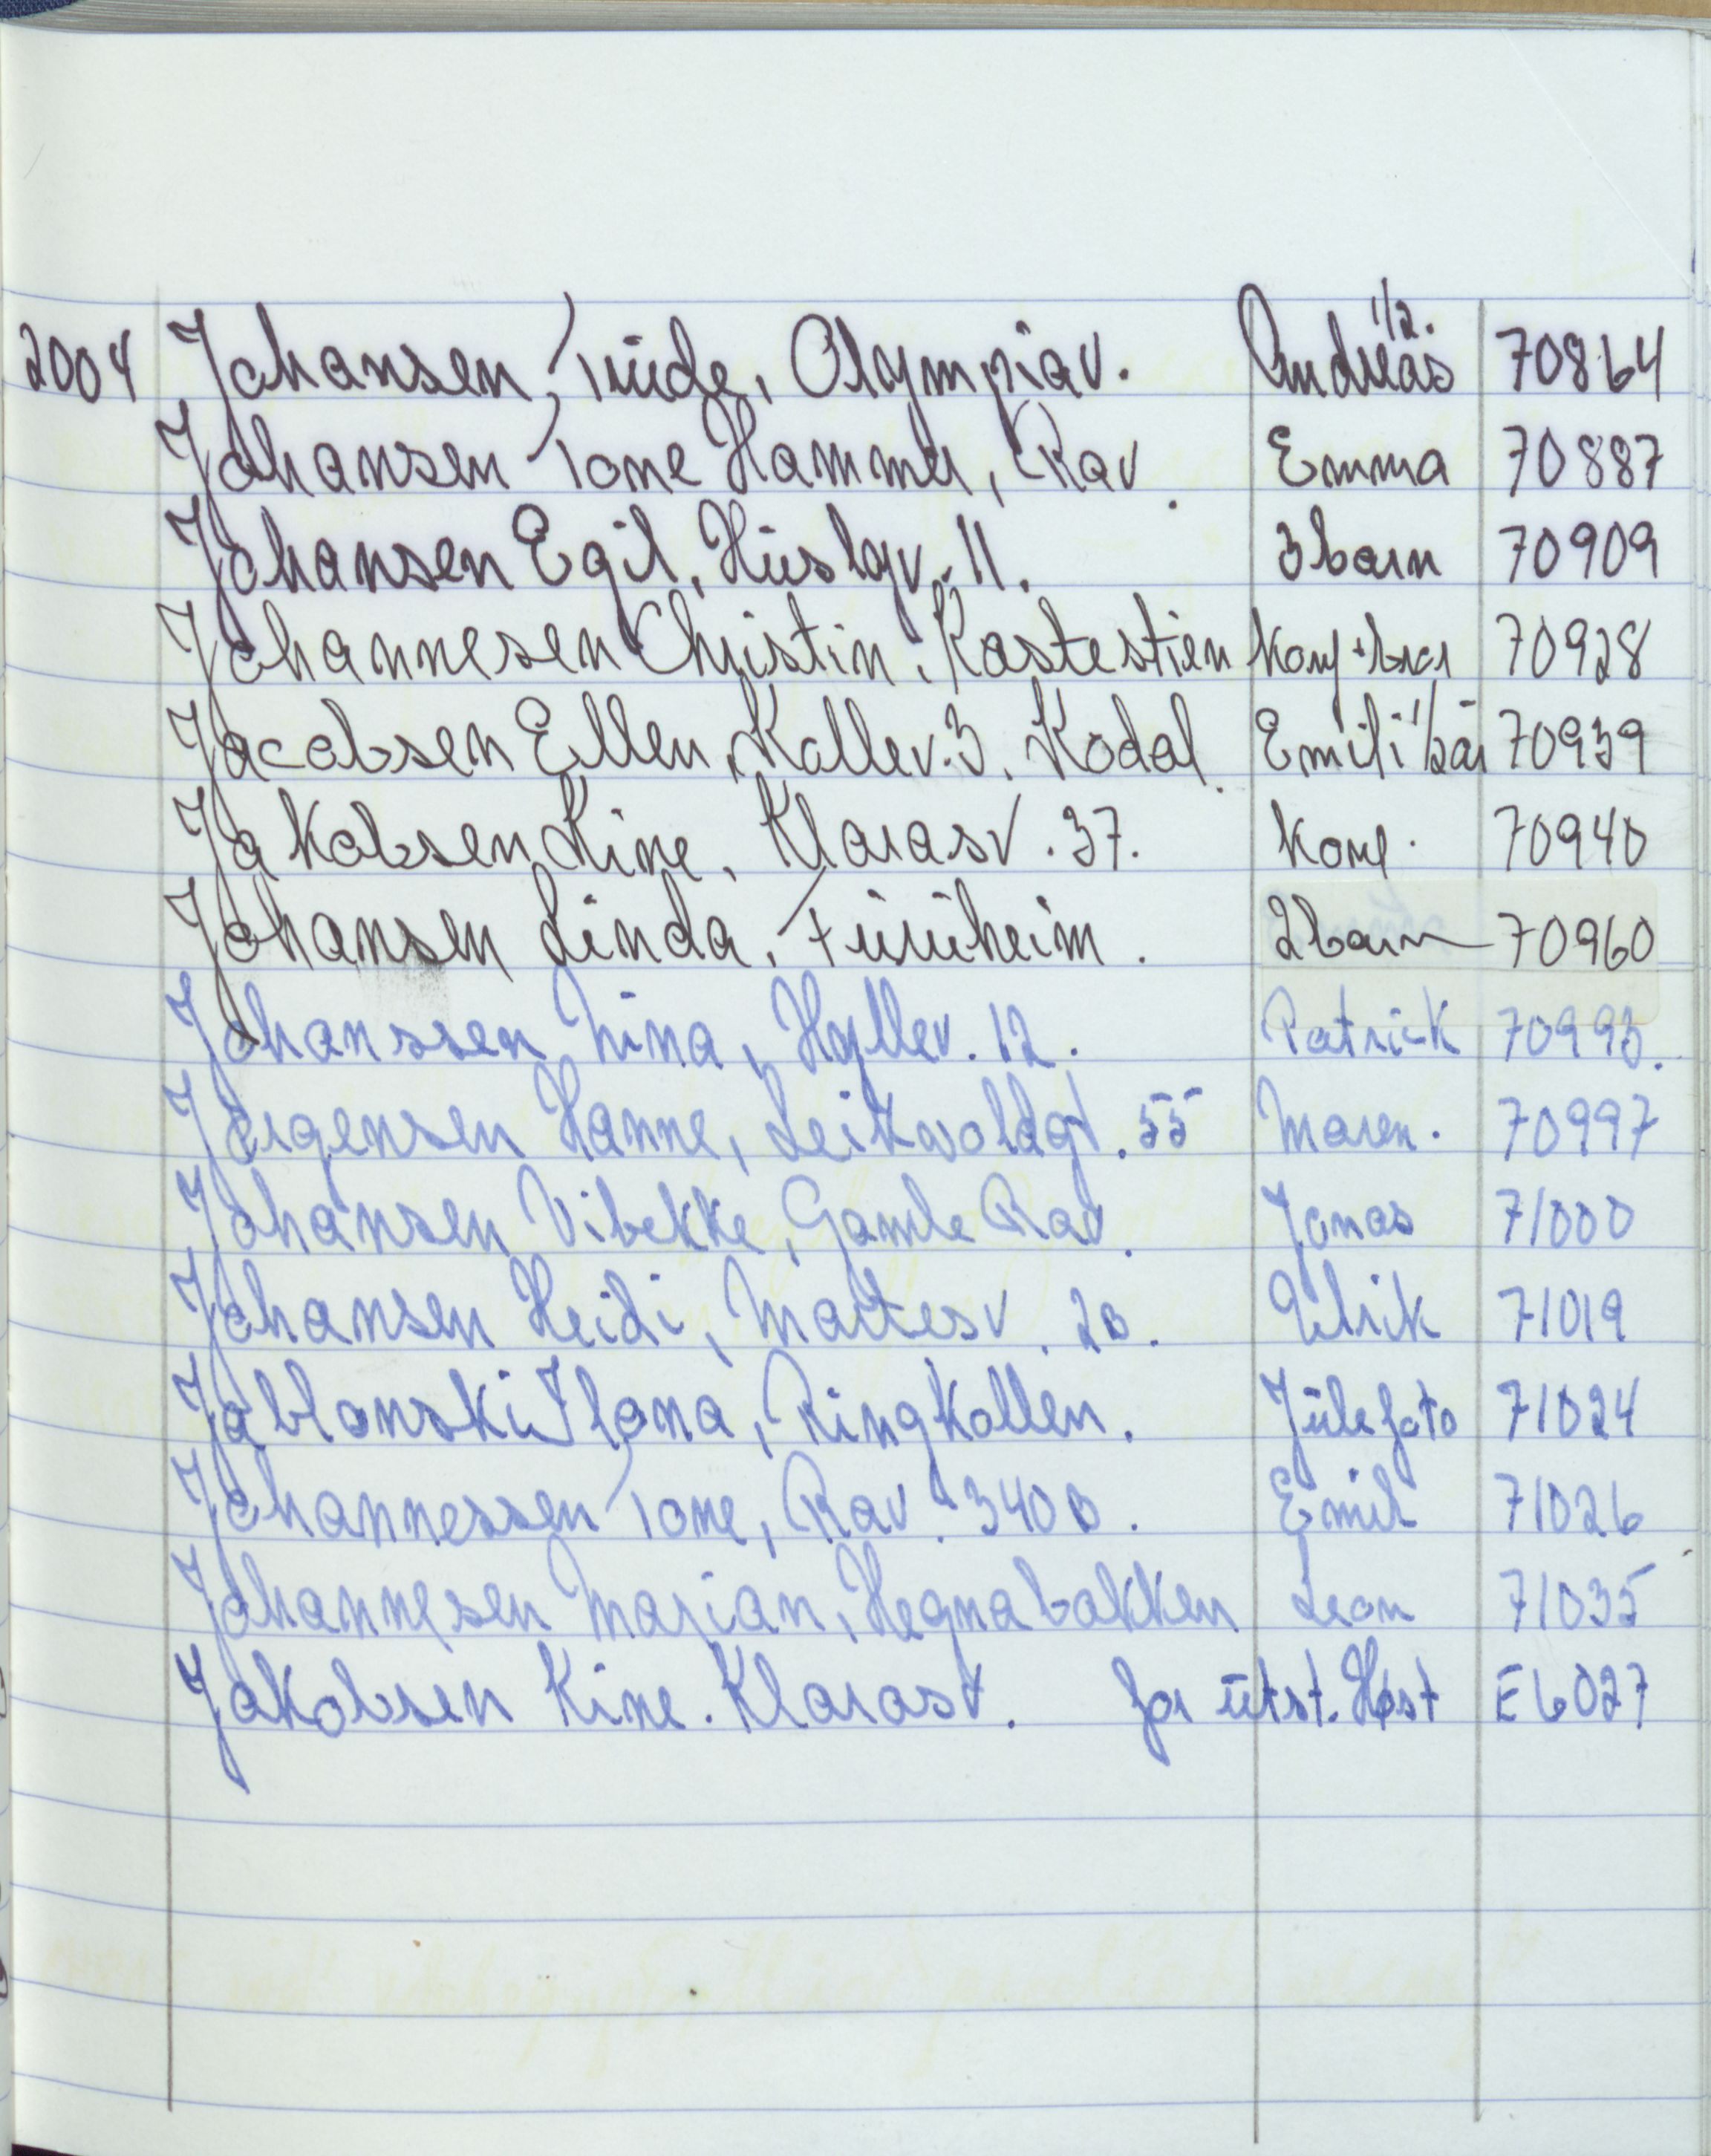 2004 Johansen Trude, Olympiav. Andreas 1/2. 70864
Johansen Tone Hammer, Rav. Emma 70887
Johansen Egil, Huslgv. 11. 3 barn 70909
Johannesen Christin, Rastestien Konf + bror 70928
Jacobsen Ellen, Kallev. 3. Kodal. Emili 1/2 år 70939
Jakobsen Kine, Klarasv. 37. Konf. 70940
Johansen Linda, Furuheim. 2 barn 70960
Johanssen Nina, Hyllev. 12. Patrick 70993.
Jørgensen Hanne, Leikvoldgt. 55 Maren. 70997
Johansen Vibekke, Gamle Rav. Jonas 71000
Johansen Heidi, Martesv. 20. Ulrik 71019
Jablonski Ilona, Ringkollen. Julefoto 71024
Johannessen Tone, Rav. 340 B. Emil 71026
Johannesen Marian, Hegnabakken Leon 71035
Jakobsen Kine. Klarasv. for utst. Høst E6027